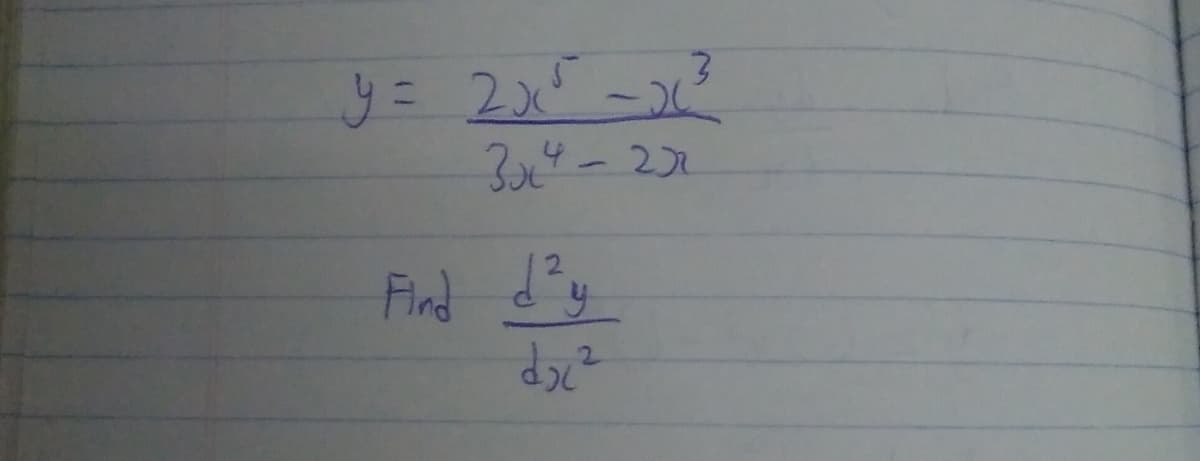 y = 2x⁵ - x³
3x⁴ - 2x
Find d²y
dx²